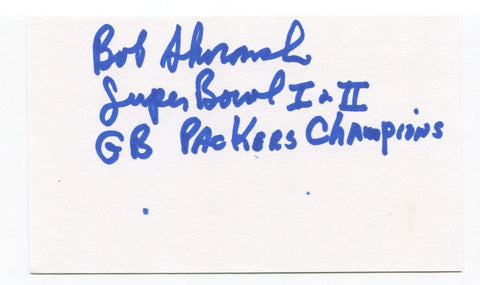 Bob Skoronski
Super Bowl I & II
GB PACKERS Champions